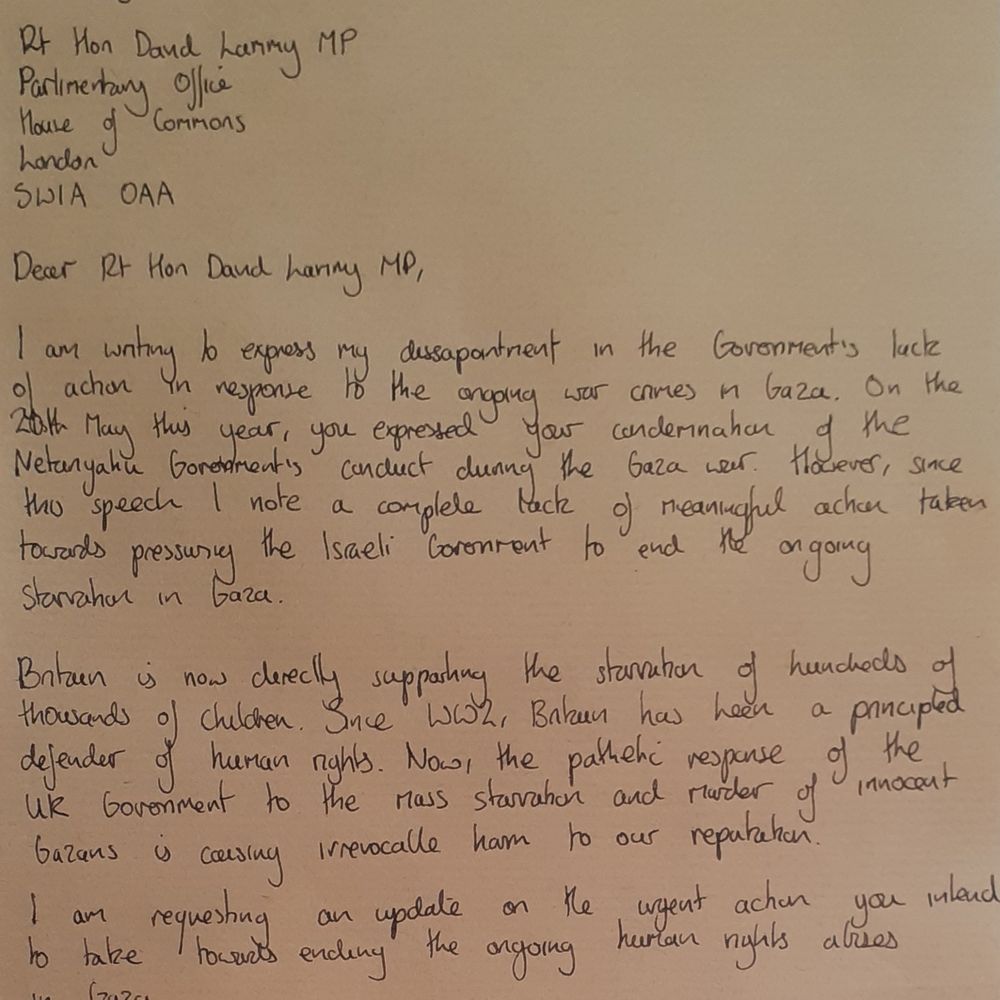 Rt Hon David Lammy MP
Parlimentary Office
House of Commons
London
SW1A 0AA
Dear Rt Hon David Lammy MP,
I am writing to express my dissapointment in the Government's lack
of action in response to the ongoing war crimes in Gaza. On the
20th May this year, you expressed your condemnation of the
Netanyahu Government's conduct during the Gaza war. However, since
this speech I note a complete lack of meaningful action taken
towards pressuring the Israeli Government to end the ongoing
starvation in Gaza.
Britain is now directly supporting the starvation of hundreds of
thousands of children. Since WW2, Britain has been a principled
defender of human rights. Now, the pathetic response of the
UK Government to the mass starvation and murder of innocent
Gazans is causing irrevocable harm to our reputation.
I am requesting an update on the urgent action you intend
to take towards ending the ongoing human rights abuses
in Gaza